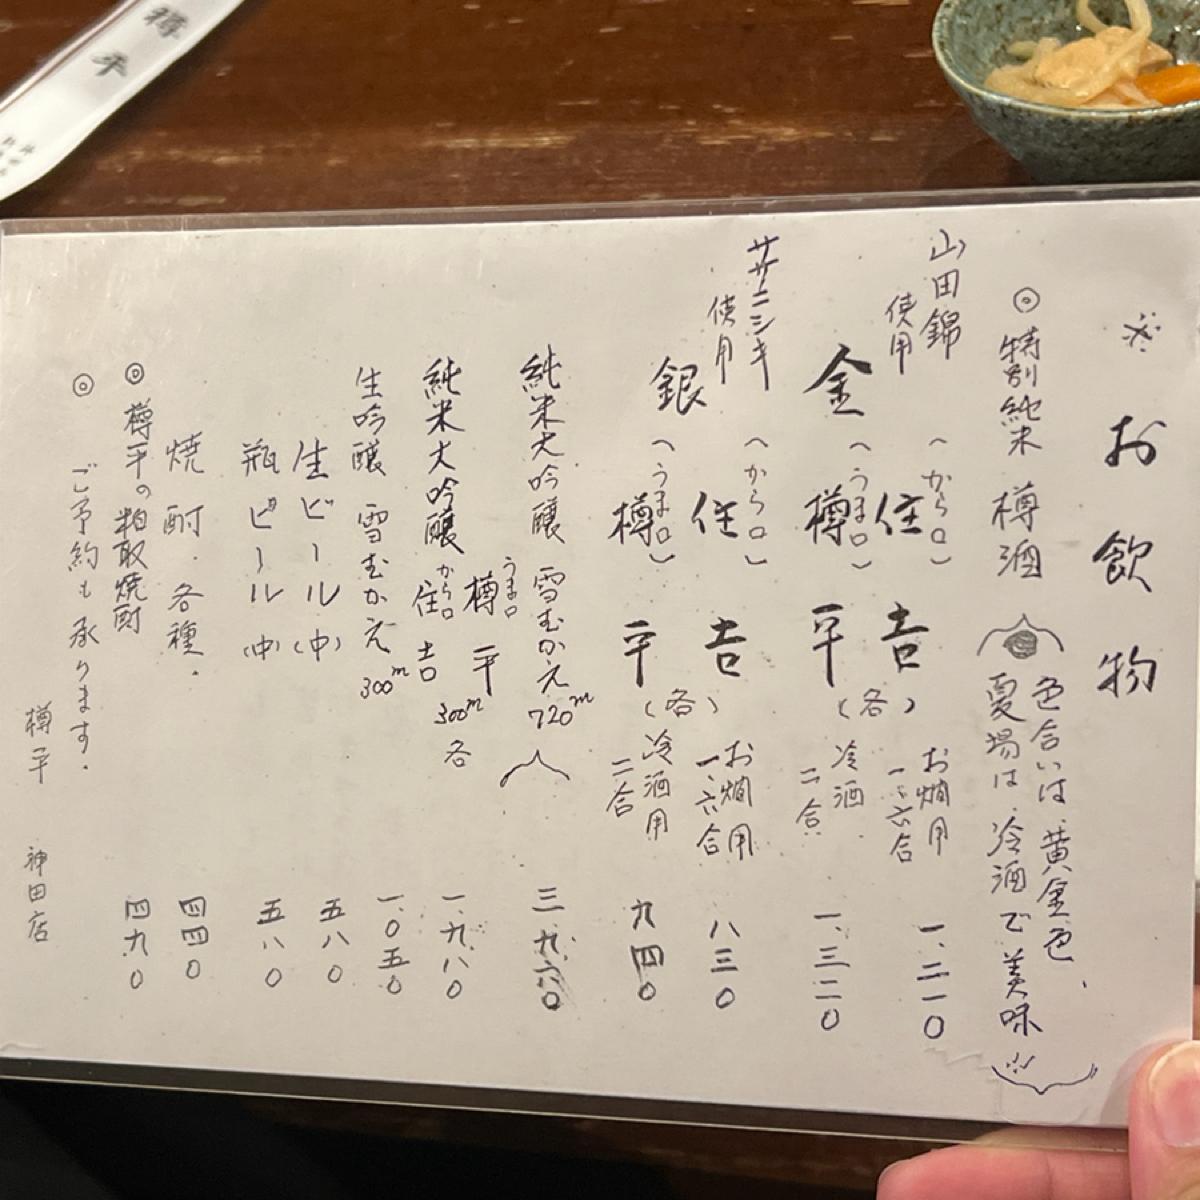 樽平
※ お飲物
◎ 特別純米 樽酒
色合いは、黄金色、
夏場は、冷酒で美味
山田錦
使用
金
(からロ)
住吉
(うまロ)
樽平
(各)
お燗用
一、六合
一、二一〇
冷酒
二合
一、三二〇
ササニシキ
使用
銀
(からロ)
住吉
(うまロ)
樽平
(各)
お燗用
一、六合
八三〇
冷酒用
二合
九四〇
純米大吟醸 雪むかえ 720m
三、九六〇
純米大吟醸
うまロ
樽平
からロ
住吉
300m
各
一、九八〇
生吟醸 雪むかえ 300m
一、〇五〇
生ビール(中)
五八〇
瓶ビール(中)
五八〇
焼酎.各種.
四四〇
◎ 樽平の粕取焼酎
四九〇
◎ ご予約も承ります.
樽平 神田店